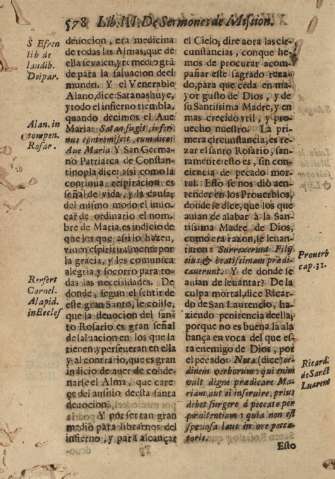 578 Lib. III. De Sermones de Mission.
S Efren
lib de
Laudib.
Deipar.
Alan. in
compen.
Rosar.
Refert
Cornel.
Alapid.
in Eccles
deuocion, era medicina
de todas las Almas, que de
ella vsauan, y re medio grã
de para la saluacion de el
mundo. Y el Venerable
Alano, dice Satanas huye,
y todo el infierno tiembla,
quando decimos el Aue
Maria: Satan fugit, infer-
nus contremiscit cum dico:
Aue Maria: Y San Germa-
no Patriarca de Constan-
tinopla dice: assi como la
continua respiracion es
señal de vida, y la causa;
del mismo modo el inuo-
car de ordinario el nom-
bre de Maria, es indicio de
que los que assi lo hacen,
viuen espiritualmente por
la gracia, y les comunica
alegria, y socorro para to-
das las necesidades. De
donde, segun el sentir de
este gran Santo, se colige,
que la deuocion del san-
to Rosario es gran señal
de saluacion en los que la
tienen, y perseueran en ella
y al contrario, que es gran
indicio de auer de conde-
narse el Alma, que care
ce del
deuocion.
Y por ser tan gran
medio para librarnos del
infierno, y para alcançar
el Cielo; dire aora las cir-
cunstancias, con que he-
mos de procurar acom-
pañar este sagrado reza-
do, para que ceda en ma-
yor gusto de Dios, y de
su Santissima Madre, y en
mas crecido vtil, y pro-
uecho nuestro. La pri-
mera circunstancia, es re-
zar el santo Rosario, san-
tamente; esto es, sin con-
ciencia de pecado mor-
tal: Esto se nos diò a en-
tender en los Prouerbios,
donde se dice, que los que
auian de alabar à la Santi-
ssima Madre de Dios,
como era razon, se leuan-
taron: Surrexerunt Filij
eius, & beatissimam prædi-
cauerunt. Y de donde se
auian de leuantar? De la
culpa mortal, dice Ricar-
do de San Laurencio, ha-
ziendo penitencia de ella;
porque no es buena la ala
bança en voca del que es-
ta enemigo de Dios, por
el pecado: Nota (dice) or-
dinem verborum: qui enim
vult digne prædicare Ma-
riam aut ei inseruire, prius
debet surgere à peccato per
pœnitentiam: quia non est
speciosa laus in ore pecca-
toris.
Prouerb
cap. 31.
Ricard.
de Sanct
Laurent
Esto